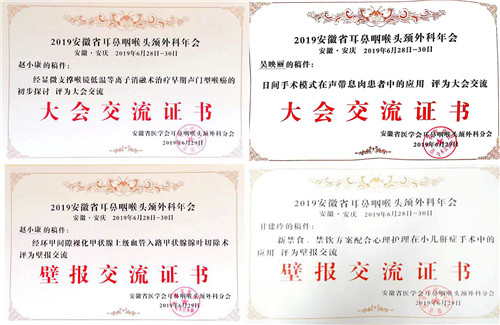 2019安徽省耳鼻咽喉头颈外科年会
安徽·安庆 2019年6月28日-30日
赵小康的稿件:
经显微支撑喉镜低温等离子消融术治疗早期声门型喉癌的
初步探讨 评为大会交流
大会交流证书
安徽省医学会耳鼻咽喉头颈外科分会
2019年6月29日
2019安徽省耳鼻咽喉头颈外科年会
安徽·安庆 2019年6月28日-30日
吴映丽的稿件:
日间手术模式在声带息肉患者中的应用 评为大会交流
大会交流证书
安徽省医学会耳鼻咽喉头颈外科分会
2019年6月29日
2019安徽省耳鼻咽喉头颈外科年会
安徽·安庆 2019年6月28日-30日
赵小康的稿件:
经环甲间隙裸化甲状腺上级血管入路甲状腺腺叶切除术
评为壁报交流
壁报交流证书
安徽省医学会耳鼻咽喉头颈外科分会
2019年6月29日
2019安徽省耳鼻咽喉头颈外科年会
安徽·安庆 2019年6月28日-30日
甘建玲的稿件:
新禁食、禁饮方案配合心理护理在小儿鼾症手术中的
应用 评为壁报交流
壁报交流证书
安徽省医学会耳鼻咽喉头颈外科分会
2019年6月29日